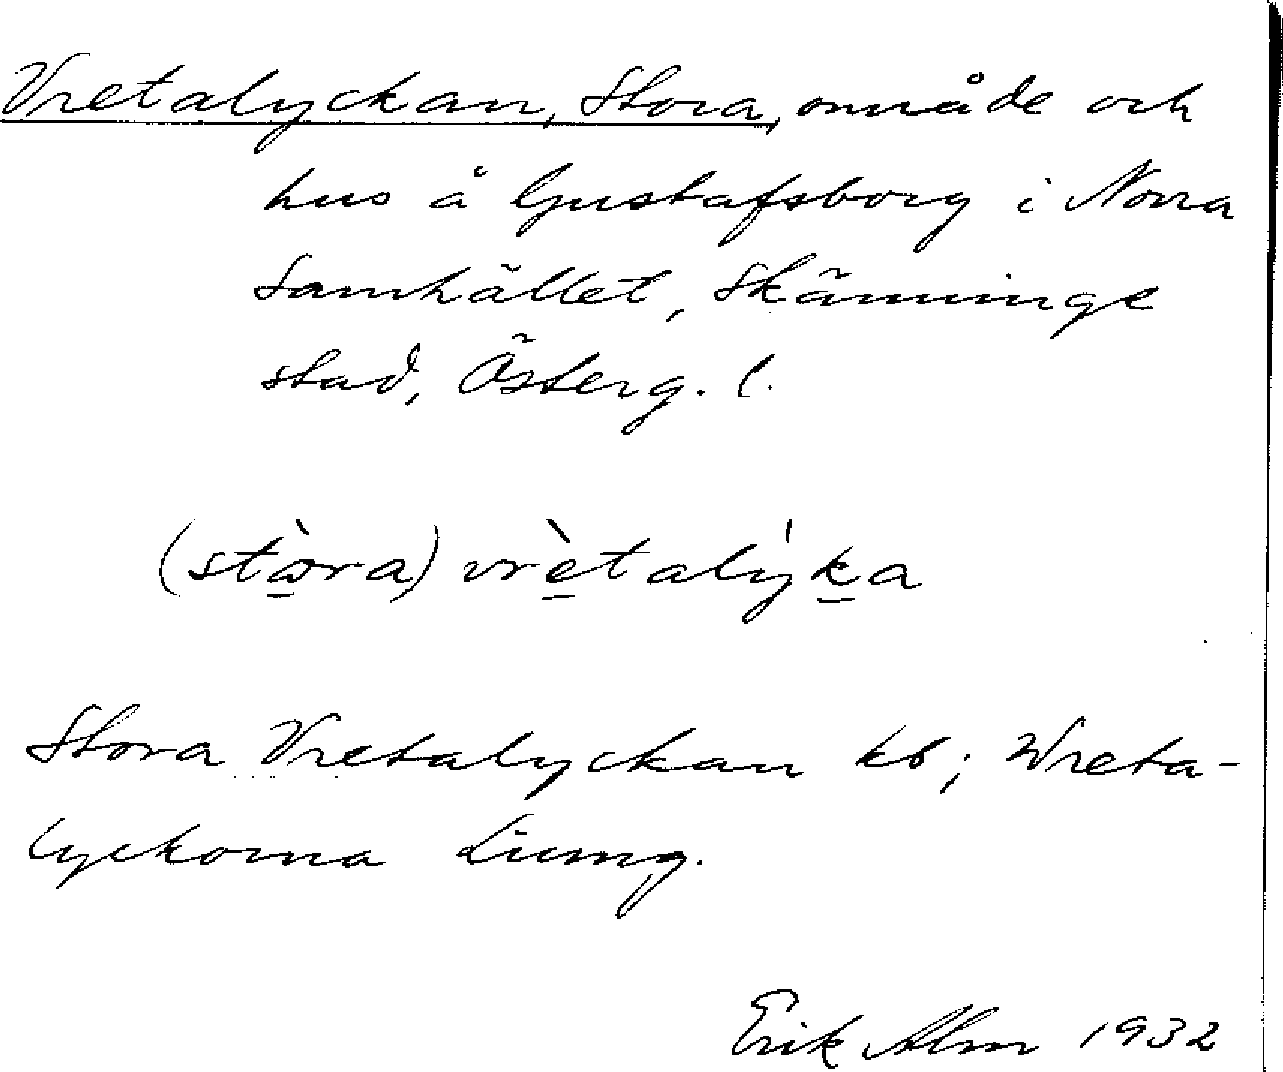 Vretalyckan, Stora, område och
hus å Gustafsborg i Norra
Samhället, Skänninge
stad, Österg. l.
(stòra) vrètalýka
Stora Vretalyckan kb; Wreta-
lyckorna Liung.
Erik Alm 1932